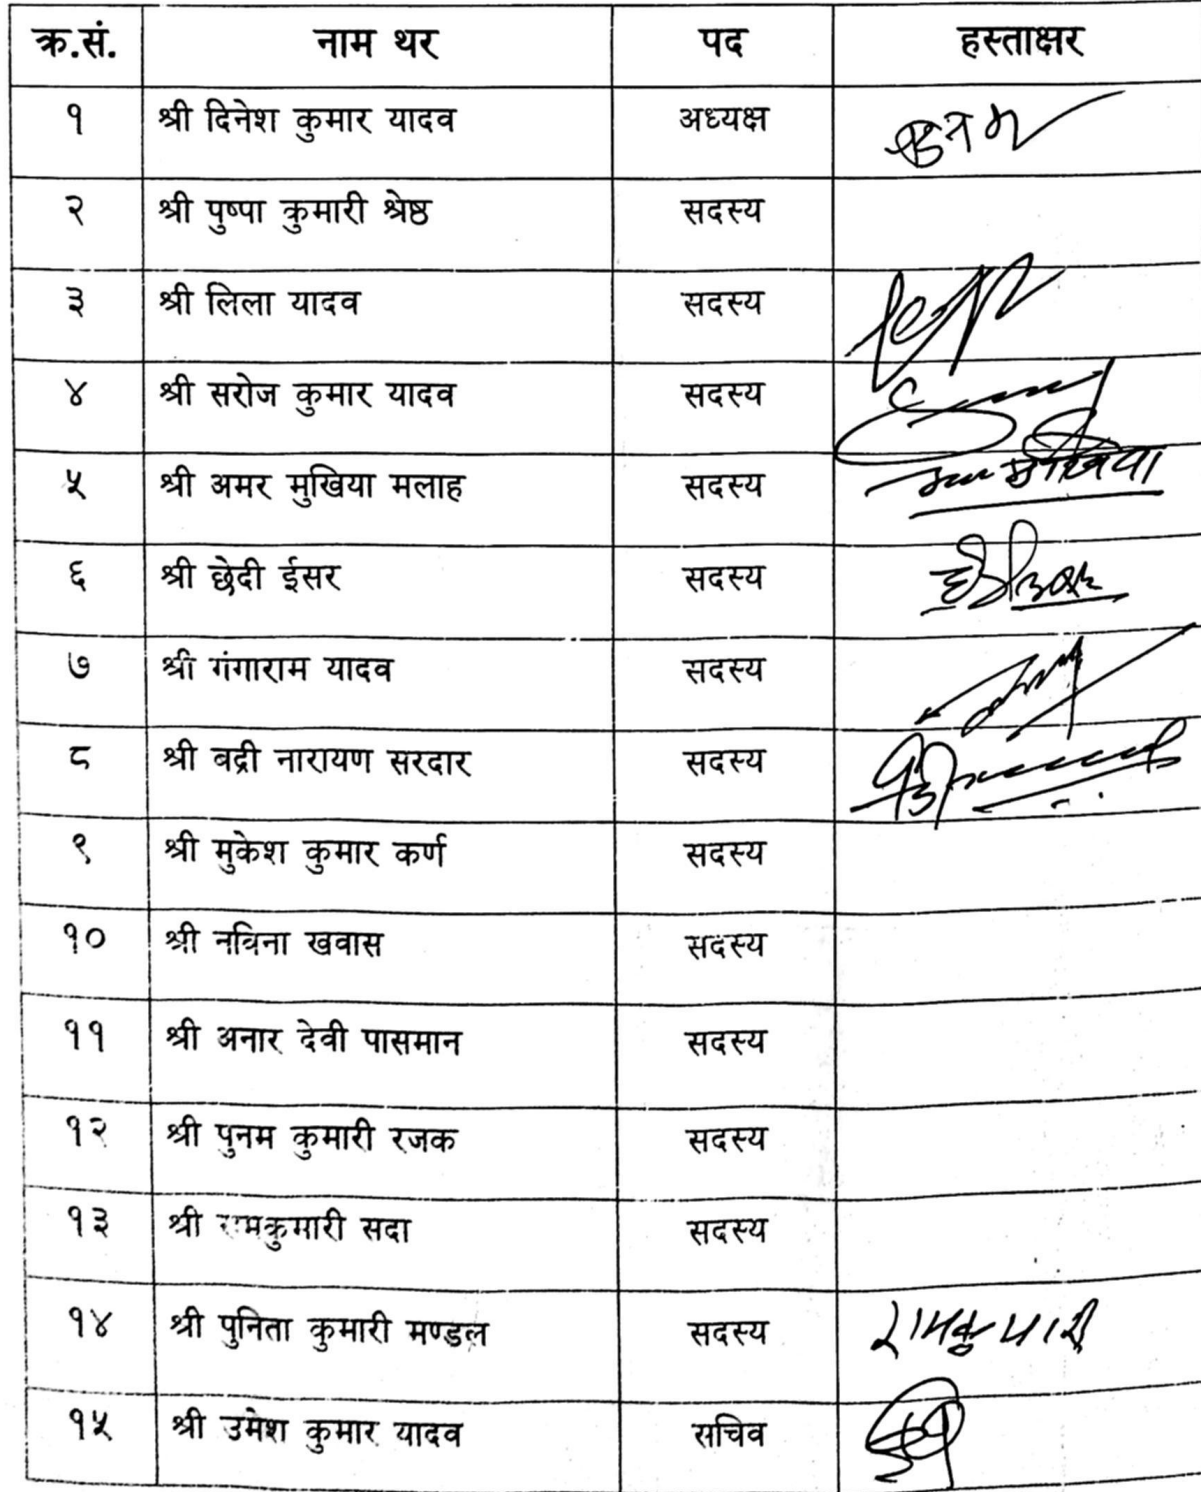 क्र.सं. नाम थर पद हस्ताक्षर
१ श्री दिनेश कुमार यादव अध्यक्ष
२ श्री पुष्पा कुमारी श्रेष्ठ सदस्य
३ श्री लिला यादव सदस्य
४ श्री सरोज कुमार यादव सदस्य
५ श्री अमर मुखिया मलाह सदस्य मुखिया
६ श्री छेदी ईसर सदस्य
७ श्री गंगाराम यादव सदस्य
८ श्री बद्री नारायण सरदार सदस्य
९ श्री मुकेश कुमार कर्ण सदस्य
१० श्री नविना खवास सदस्य
११ श्री अनार देवी पासमान सदस्य
१२ श्री पुनम कुमारी रजक सदस्य
१३ श्री रामकुमारी सदा सदस्य
१४ श्री पुनिता कुमारी मण्डल सदस्य रामकुमारी
१५ श्री उमेश कुमार यादव सचिव